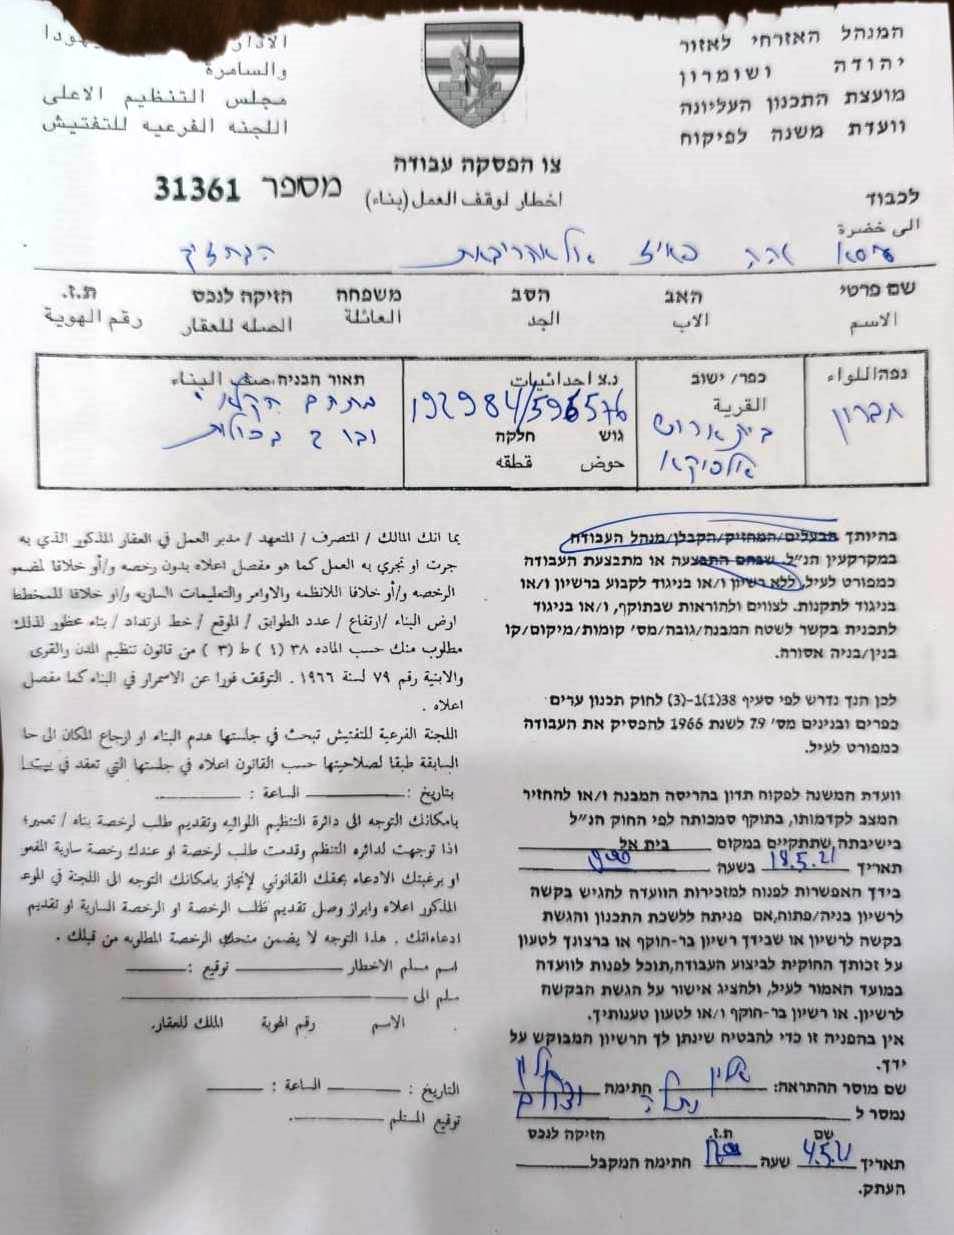 המנהל האזרחי לאזור
יהודה ושומרון
מועצת התכנון העליונה
וועדת משנה לפיקוח
والسامرة
مجلس التنظيم الاعلى
اللجنه الفرعيه للتفتيش
צו הפסקה עבודה
اخطار لوقف العمل (بناء)
מספר 31361
לכבוד
الى خضرة
עיסא
המחזיק
שם פרטי האב הסב משפחה הזיקה לנכס ת.ז.
الاسم الاب الجد العائلة الصله للعقار رقم الهوية
נפה اللواء
חברון
כפר/ ישוב
القرية
בית
נ.צ احداثيات
192984/596576
גוש חלקה
حوض قطقه
תאור הבניה، صنف البناء
מתחם חקלאי
בהיותך הבעלים/המחזיק/הקבלן/מנהל העבודה
במקרקעין הנ"ל, שבהם התבצעה או מתבצעת העבודה
כמפורט לעיל, ללא רשיון ו/או בניגוד לקבוע ברשיון ו/או
בניגוד לתקנות. לצווים ולהוראות שבתוקף, ו/או בניגוד
לתכנית בקשר לשטח המבנה/גובה/מס' קומות/מיקום/קו
בנין/בניה אסורה.
לכן הנך נדרש לפי סעיף 38(1)1-(3) לחוק תכנון ערים
כפרים ובנינים מס' 79 לשנת 1966 להפסיק את העבודה
כמפורט לעיל.
וועדת המשנה לפקוח תדון בהריסה המבנה ו/או להחזיר
המצב לקדמותו, בתוקף סמכותה לפי החוק הנ"ל
בישיבתה שתתקיים במקום בית אל
תאריך 18.5.21 בשעה
בידך האפשרות לפנות למזכירות הוועדה להגיש בקשה
לרשיון בניה/פתוח, אם פניתה ללשכת התכנון והגשת
בקשה לרשיון או שבידך רשיון בר-חוקף או ברצונך לטעון
על זכותך החוקית לביצוע העבודה, תוכל לפנות לוועדה
במועד האמור לעיל, ולהציג אישור על הגשת הבקשה
לרשיון. או רשיון בר-חוקף ו/או לטעון טענותיך.
אין בהפניה זו כדי להבטיח שינתן לך הרשיון המבוקש על
ידך.
שם מוסר ההתראה: חתימה
נמסר ל
שם ת.ז. הזיקה לנכס
תאריך 4.5.21 שעה חתימה המקבל
העתק.
بما انك المالك / المتصرف / المتعهد / مدير العمل في العقار المذكور الذي به
جرت او تجري به العمل كما هو مفصل اعلاه بدون رخصه و/أو خلافا لمضمو
الرخصه و/أو خلافا للانظمه والاوامر والتعليمات الساريه و/او خلافا للمخطط
ارض البناء /ارتفاع / عدد الطوابق / الموقع / خط ارتداد / بناء محظور لذلك
مطلوب منك حسب الماده ٣٨ (١) ط (٣) من قانون تنظيم المدن والقرى
والابنية رقم ٧٩ لسنة ١٩٦٦ . التوقف فورا عن الاسمرار في البناء كما مفصل
اعلاه .
اللجنة الفرعية للتفتيش تبحث في جلستها هدم البناء او ارجاع المكان الى حا
السابقة طبقا لصلاحيتها حسب القانون اعلاه في جلستها التي تعقد في بيت
بتاريخ : الساعة :
بامكانك التوجه الى دائرة التنظيم اللوائيه وتقديم طلب لرخصة بناء / تعمير؛
اذا توجهت لدائره التنظم وقدمت طلب لرخصة او عندك رخصة سارية المفعو
او برغبتك الادعاء بحقك القانوني لإنجاز بامكانك التوجه الى اللجنة في الموعد
المذكور اعلاه وابراز وصل تقديم طلب الرخصة او الرخصة السارية او تقديم
ادعاءاتك . هذا التوجه لا يضمن منحك الرخصة المطلوبه من قبلك .
اسم مسلم الاخطار توقيع :
سلم الى
الاسم رقم الهوية الملك للعقار.
التاريخ : الساعة :
توقيع المستلم